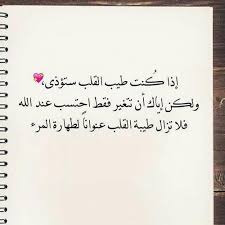 إذا كُنت طيب القلب ستؤذى،💘
ولكن إياك أن تتغير فقط احتسب عند الله
فلا تزال طيبة القلب عنواناً لطهارة المرء